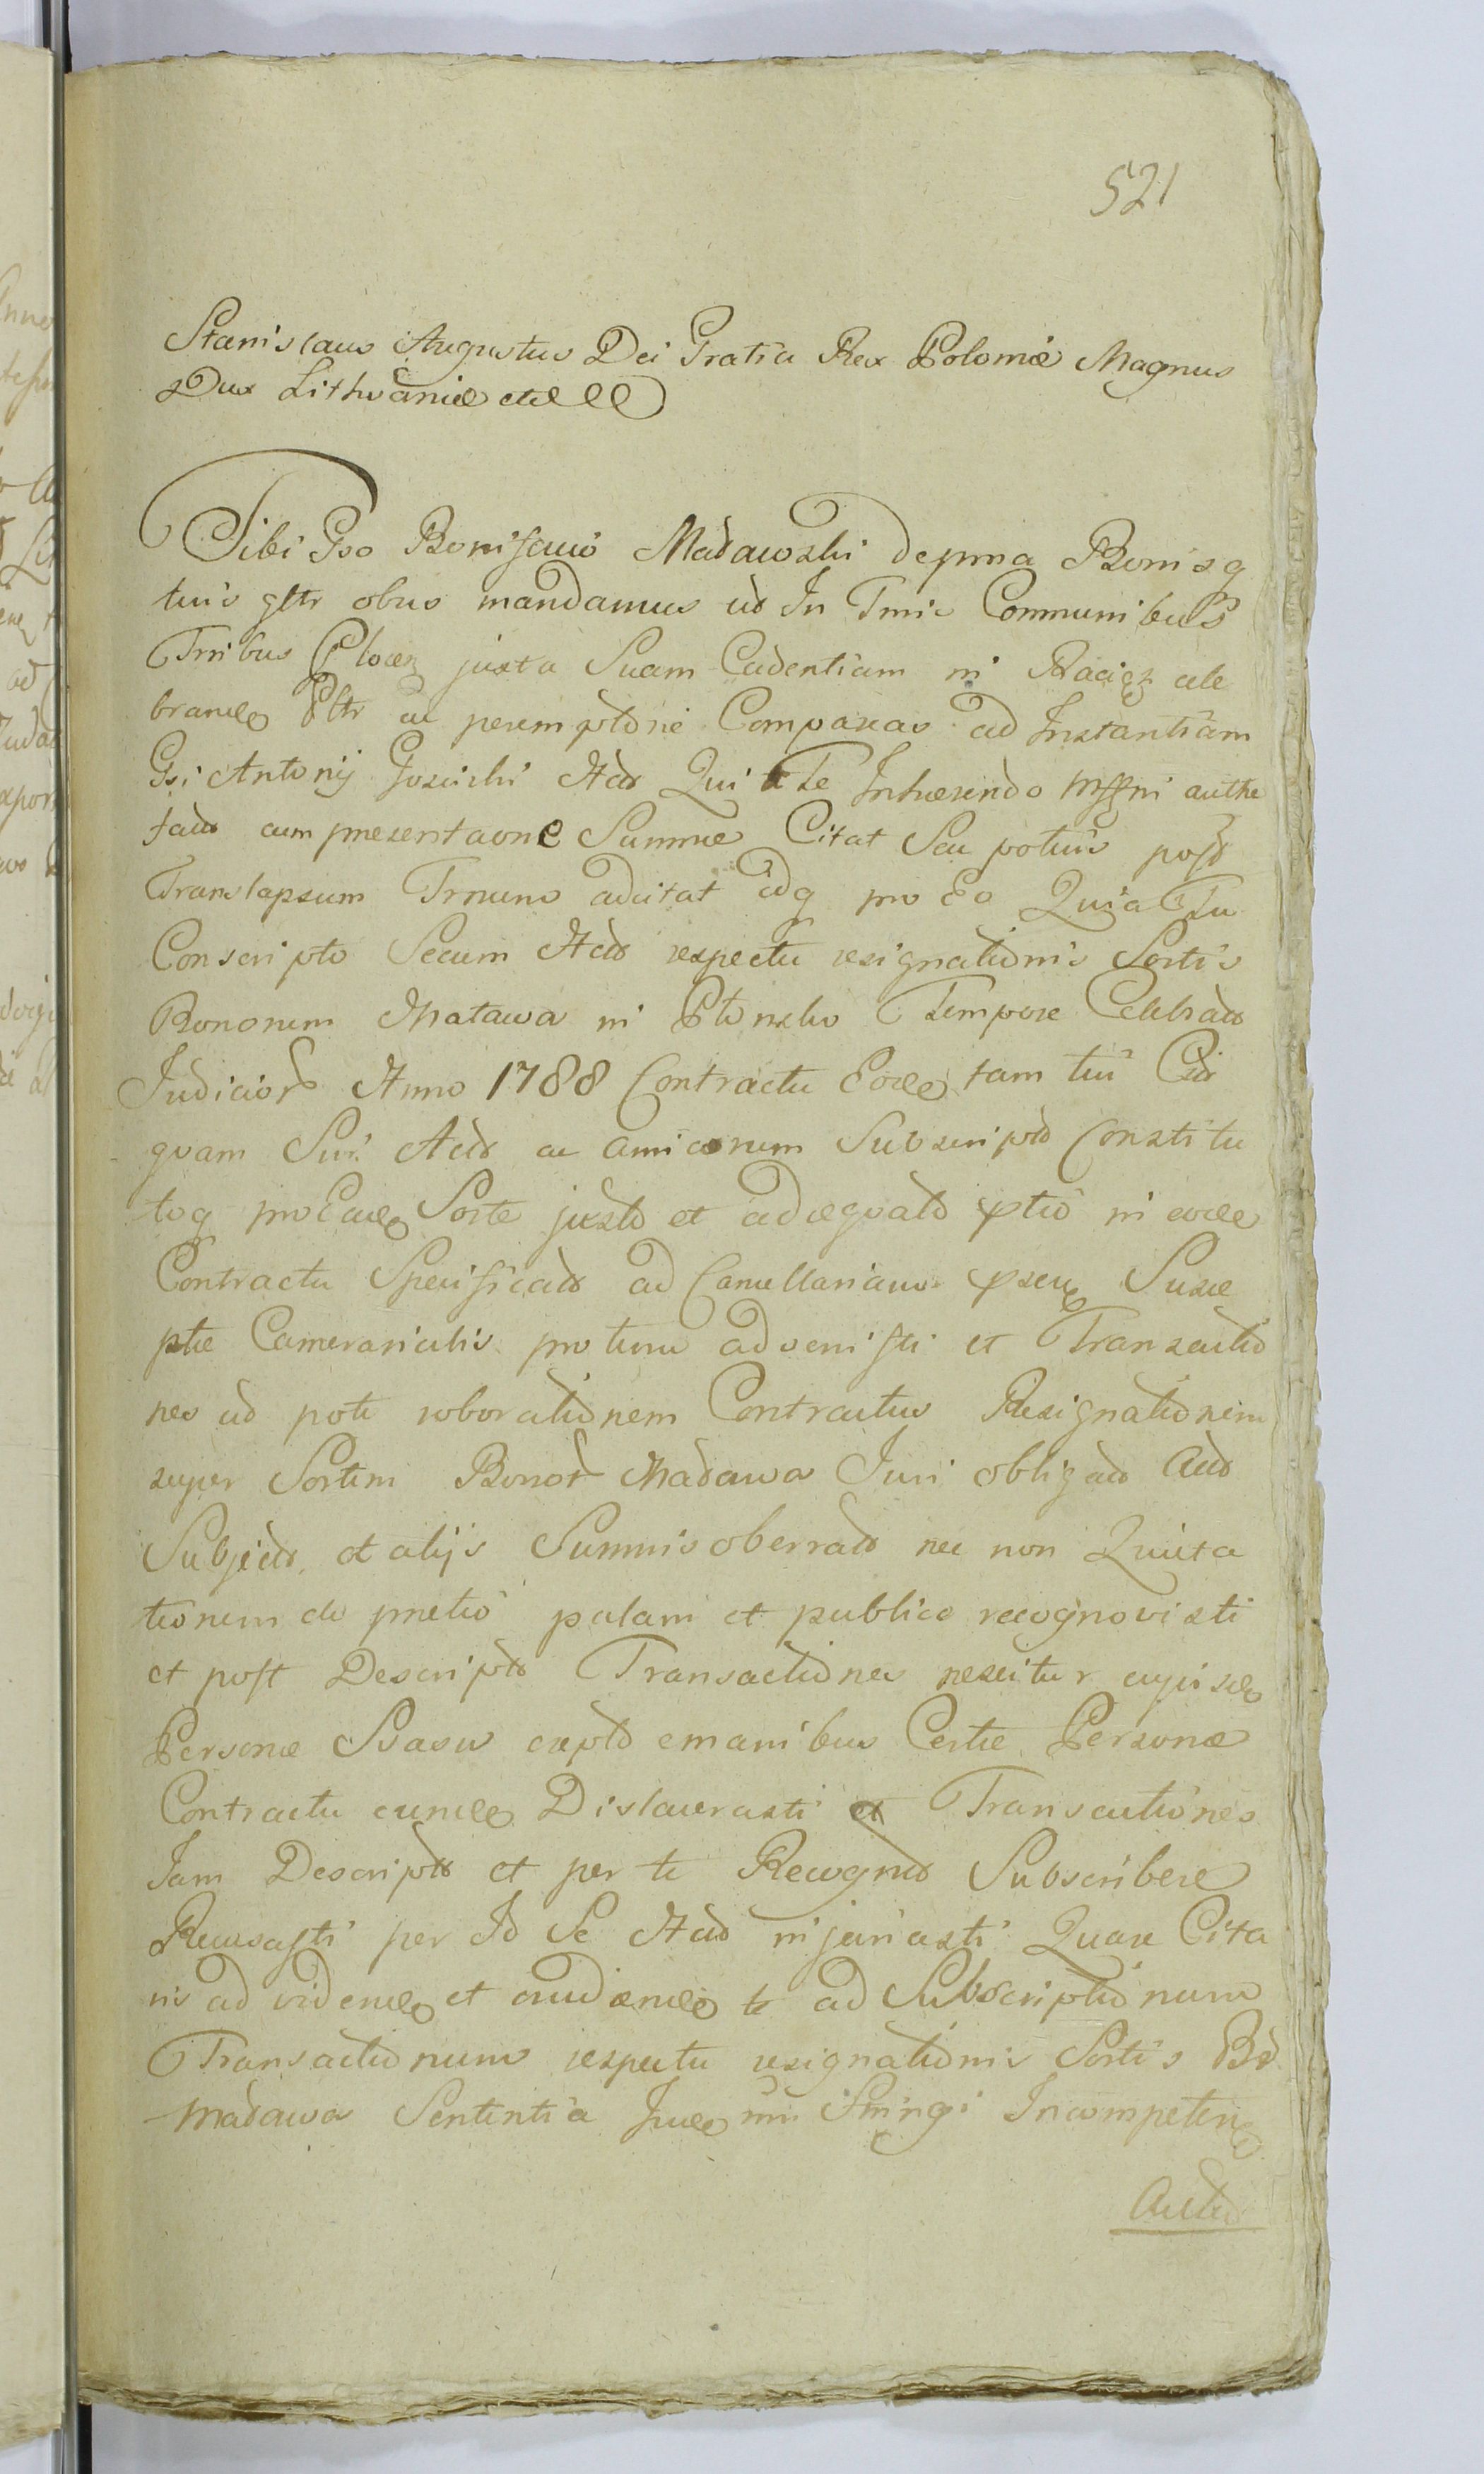 521
Stanislaus Augustus Dei Gratia Rex Poloniæ Magnus
Dux Lithvaniæ etc
Tibi Gso Bonifacio Madawski de pna Bonisq
tuis gltr obus mandamus ut In Tmis Communibus
Trribus Plocen juxta Suam Cadentiam in Raciąż cele
brand Pltr ac peremptorie Compareas ad Instantiam
Gsi Antonij Gosciski Actor Qui Te Inhærendo Mssni authe
tado cum presentaone Summæ Citat Seu potius post
Translapsum Trnum adcitat idq pro Eo Quia Tu
Conscripto Secum Actor respectu resignationis Sortis
Bonorum Matawa in Płonsko Tempore Celebrato
Judicior Anno 1788 Contractu Eode tam tui Cit
quam Sui Actor ac amicorum Subscripto Constitu
toq pro Eade Sorte justo et adæquato ptio in eode
Contractu Specificato ad Cancellariam psen Susce
ptæ Camerarialis pro tunc advenisti et Transactio
nes ut pote roborationem Contractus Resignationem
super Sortem Bonor Madawa Juri obligato Act
Subjecto et alijs Summis oberrato nec non Quieta
tionem de pretio palam et publice recognovisti
et post Descripto Transactiones nescitur cujusde
Personæ Svasu cepto e manibus Certæ Personæ
Contractu eunde Dislacerasti et Transactiones
Jam Descripto et per te Recognito Subscribere
Recusasti per Id Se Actor injuriasti Quare Cita
ris ad vidend et audiend te ad Subscriptionum
Transactionum respectu resignationis Sortis Bo
Madawa Sententia Stringi Incompeten